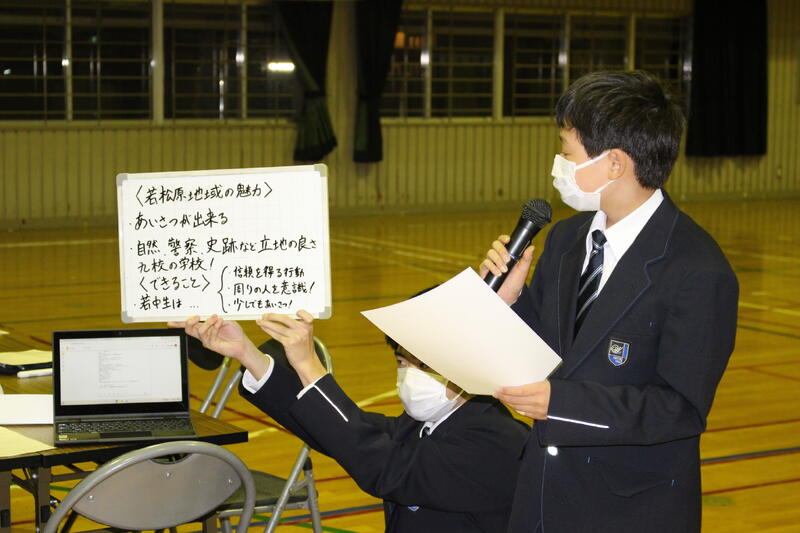 〈若松原地域の魅力〉
・あいさつが出来る
・自然、警察、史跡など立地の良さ
九校の学校!
〈できること〉
・若中生は…
・信頼を得る行動
・周りの人を意識!
・少しでもあいさつ!